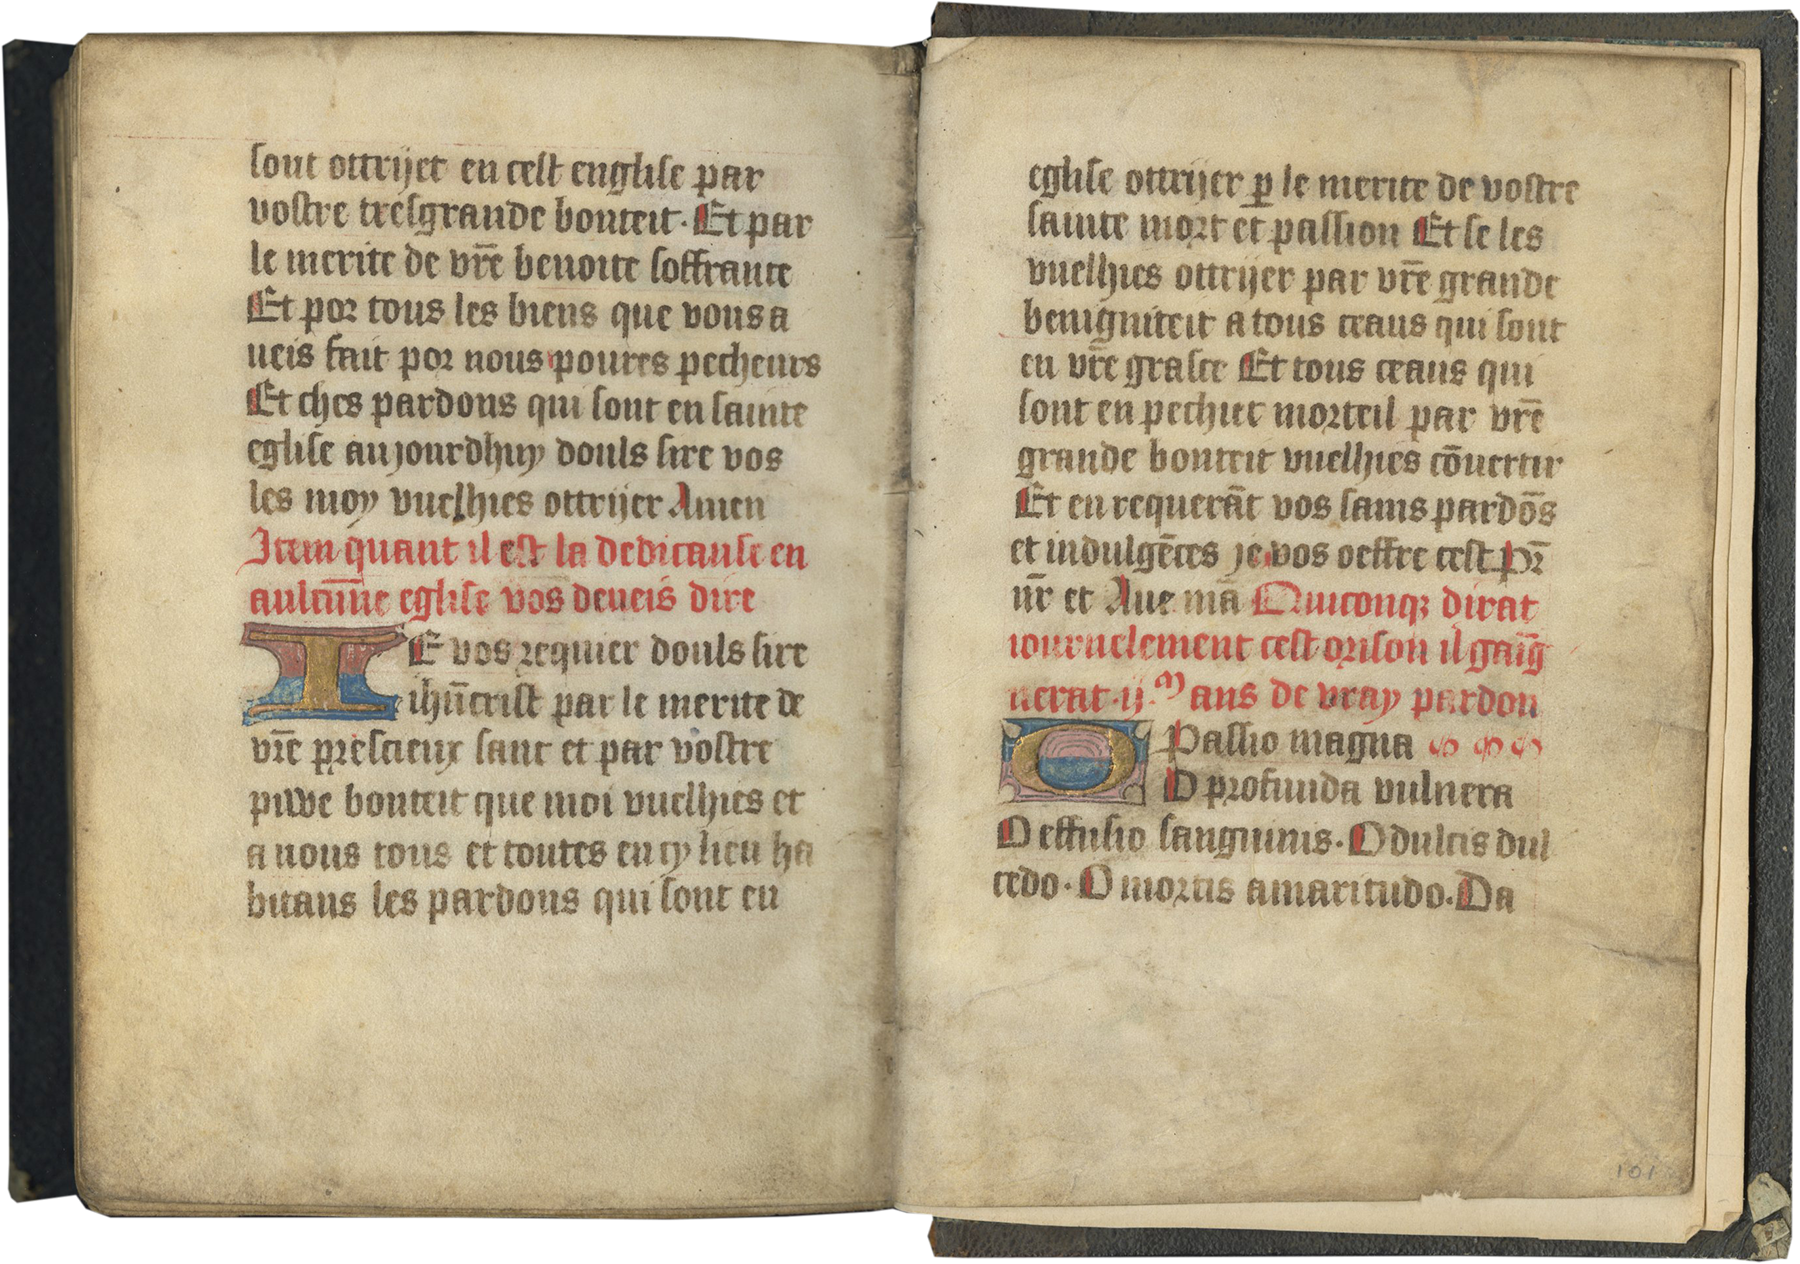 sont ottrijet en cest englise par
vostre tresgrande bonteit. Et par
le merite de vr̄e benoite soffrante
Et por tous les biens que vous a
ueis fait por nous poures pecheurs
Et ches pardons qui sont en sainte
eglise aujourdhuy douls sire vos
les moy vuelhies ottrijer Amen
Item quant il est la dedicause en
aulcūne eglise vos deueis dire
IE vos requier douls sire
ihūcrist par le merite de
vr̄e prescieux sanc et par vostre
piwe bonteit que moi vuelhies et
a nous tous et toutes en cy lieu ha
bitans les pardons qui sont en
eglise ottrijer ꝑ le merite de vostre
sainte mort et passion Et se les
vuelhies ottrijer par vr̄e grande
benigniteit a tous ceaus qui sont
en vr̄e grasce Et tous ceaus qui
sont en pechiet morteil par vr̄e
grande bonteit vuelhies cōuertir
Et en requerāt vos sains pardōs
et indulgēces je vos oeffre cest Pr̄
nr̄ et Aue mā Quiconqꝫ dirat
iournelement cest orison il gaīg
nerat .ij.ᵐ ans de vray pardon
O Passio magna
O profunda vulnera
O effusio sanguinis. O dulcis dul
cedo. O mortis amaritudo. Da
101